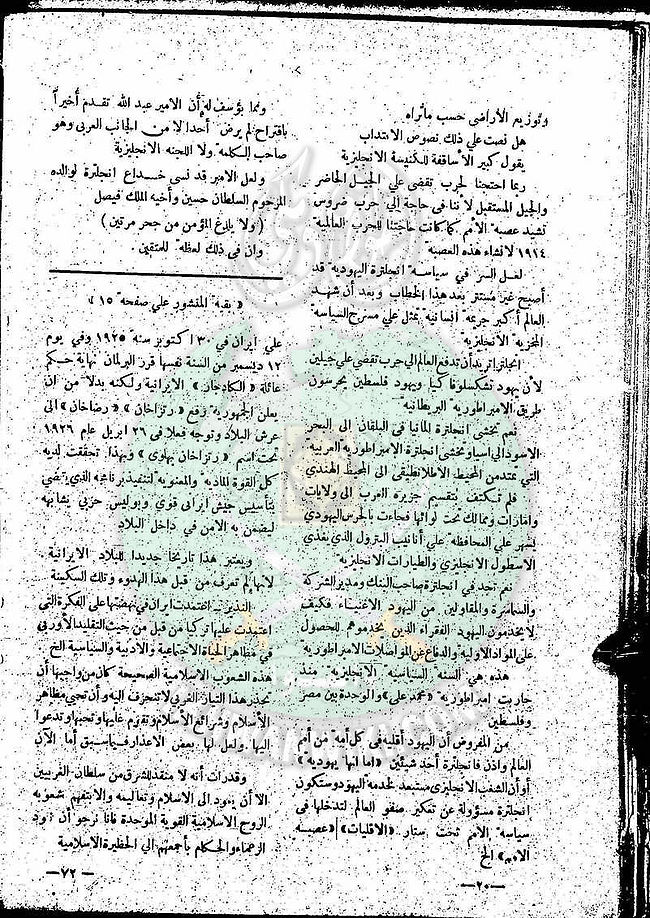 وتوزيع الأراضى حسب ماتراه
هل نصت علي ذلك نصوص الانتداب
يقول كبير الأساقفة للكنيسة الانجليزية
ربما احتجنا لحرب تقضي علي الجيل الحاضر
والجيل المستقبل لأننا فى حاجة إلي حرب ضروس
تشيد عصبة الأمم كما كانت حاجتنا للحرب العالمية
١٩١٤ لانشاء هذه العصبة
لعل السر في سياسة انجلترة اليهودية قد
أصبح غير مستتر بعد هذا الخطاب وبعد أن شهد
العالم أكبر جريمة انسانية تمثل علي مسرح السياسة
المخزية الانجليزية
انجلترا تريد أن تدفع العالم الي حرب تقضي علي جيلين
لأن يهود تشكسلوفا كيا ويهود فلسطين يحرسون
طريق الامبراطورية البريطانية
نعم تخشى انجلترة المانيا فى البلقان الى البحر
الاسود الى اسيا وتخشى انجلترة الامبراطورية العربية
التي تمتد من المحيط الاطلانطيقى الى المحيط الهندي
فلم تكتف بتقسيم جزيرة العرب الى ولايات
وامارات وممالك تحت لوائها فجاءت بالحرس اليهودي
يسهر علي المحافظة علي أنابيب البترول الذي يغذي
الاسطول الانجليزي والطيارات الانجليزية
نعم تجد في انجلترة صاحب البنك ومدير الشركة
والسماسرة والمقاولين من اليهود الأغنياء فكيف
لا يخدمون اليهود الفقراء الذين يخدموهم للحصول
على المواد الاولية والدفاع عن المواصلات الامبراطورية
هذه هي السنة السياسية الانجليزية منذ
حاربت امبراطورية «محمد على» والوحدة بين مصر
وفلسطين
من المفروض أن اليهود أقلية فى كل أمة من أمم
العالم واذن فانجلترة أحد شيئين «اما انها يهودية»
أو أن الشعب الانجليزى مستعبد لخدمة اليهود وستكون
انجلترة مسؤولة عن تعكير صفو العالم لتدخلها فى
سياسة الأمم تحت ستار «الاقليات» «عصبة
الامم» الخ
—٢٠—
ومما يؤسف له أن الامير عبد الله تقدم أخيراً
باقتراح لم يرض أحدا لا من الجانب العربى وهو
صاحب الكلمة ولا اللجنة الانجليزية
ولعل الأمير قد نسى خداع انجلترة لوالده
المرحوم السلطان حسين وأخيه الملك فيصل
(ولا يلدغ المؤمن من جحر مرتين)
وان فى ذلك لعظة للمتقين .
« بقية المنشور علي صفحة ١٥ »
علي ايران في ٣٠ اكتوبر سنة ١٩٢٥ وفي يوم
١٢ ديسمبر من السنة نفسها قرر البرلمان نهاية حكم
عائلة «الكادخان» الايرانية ولكنه بدلا من ان
يعلن الجمهورية رفع «رتزاخان» «رضاخان» الى
عرش البلاد وتوجه فعلا فى ٢٦ ابريل عام ١٩٢٦
تحت اسم «رتزاخان بهلوى» وبهذا تحققت لديه
كل القوة المادية والمعنوية لتنفيذ برنامجه الذي يقضي
بتأسيس جيش ايرانى قوي وبوليس حزبي نشابهه
ليضمن به الامن في داخل البلاد
ويعتبر هذا تاريخا جديدا للبلاد الايرانية
لانها لم تعرف من قبل هذا الهدوء وتلك السكينة
اعتمدت ايران في نهضتها على الفكرة التي
اعتمدت عليها تركيا من قبل من حيث التقليد الأوربي
في مظاهر الحياة الاجتماعية والادبية والسياسية الخ
هذه الشعوب الاسلامية الصحيحة كان من واجبها أن
تحذر هذا التيار الغربي لا تنجرف اليه وأن تحيي مظاهر
الاسلام وشرائع الاسلام وتقوم عليها وتحبها وتدعوا
اليها . ولعل لها بعض الاعذار فيما سبق أما الآن
وقد رأت أنه لا منقذ للشرق من سلطان الغربيين
الا أن يعود الى الاسلام وتعاليمه والا بتفهم شعوبه
الروح الاسلامية القوية الموحدة فانا نرجو أن تعود
الزعماء والحكام بأجمعهم الي الحظيرة الاسلامية
—٧٢—